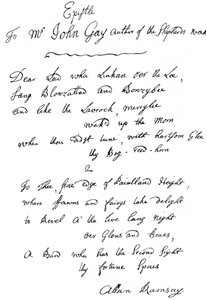 Epistle
To Mr John Gay Author of the Shepherds week
Dear Lad who Linkan o'er the Lee,
Sang Blowzalind and Bowzybee
And like the Lavrock, merrylie
wak'd up the Morn
When thou didst tune, with heartsom Glee
thy Bog-Reed-horn
2
To thee frae edge of
Where fawns and fairys take delight
to Revel a' the live lang night
o'er Glens and Braes,
A Bard wha has the Second Sight
thy fortune Spaes
Allan Ramsay